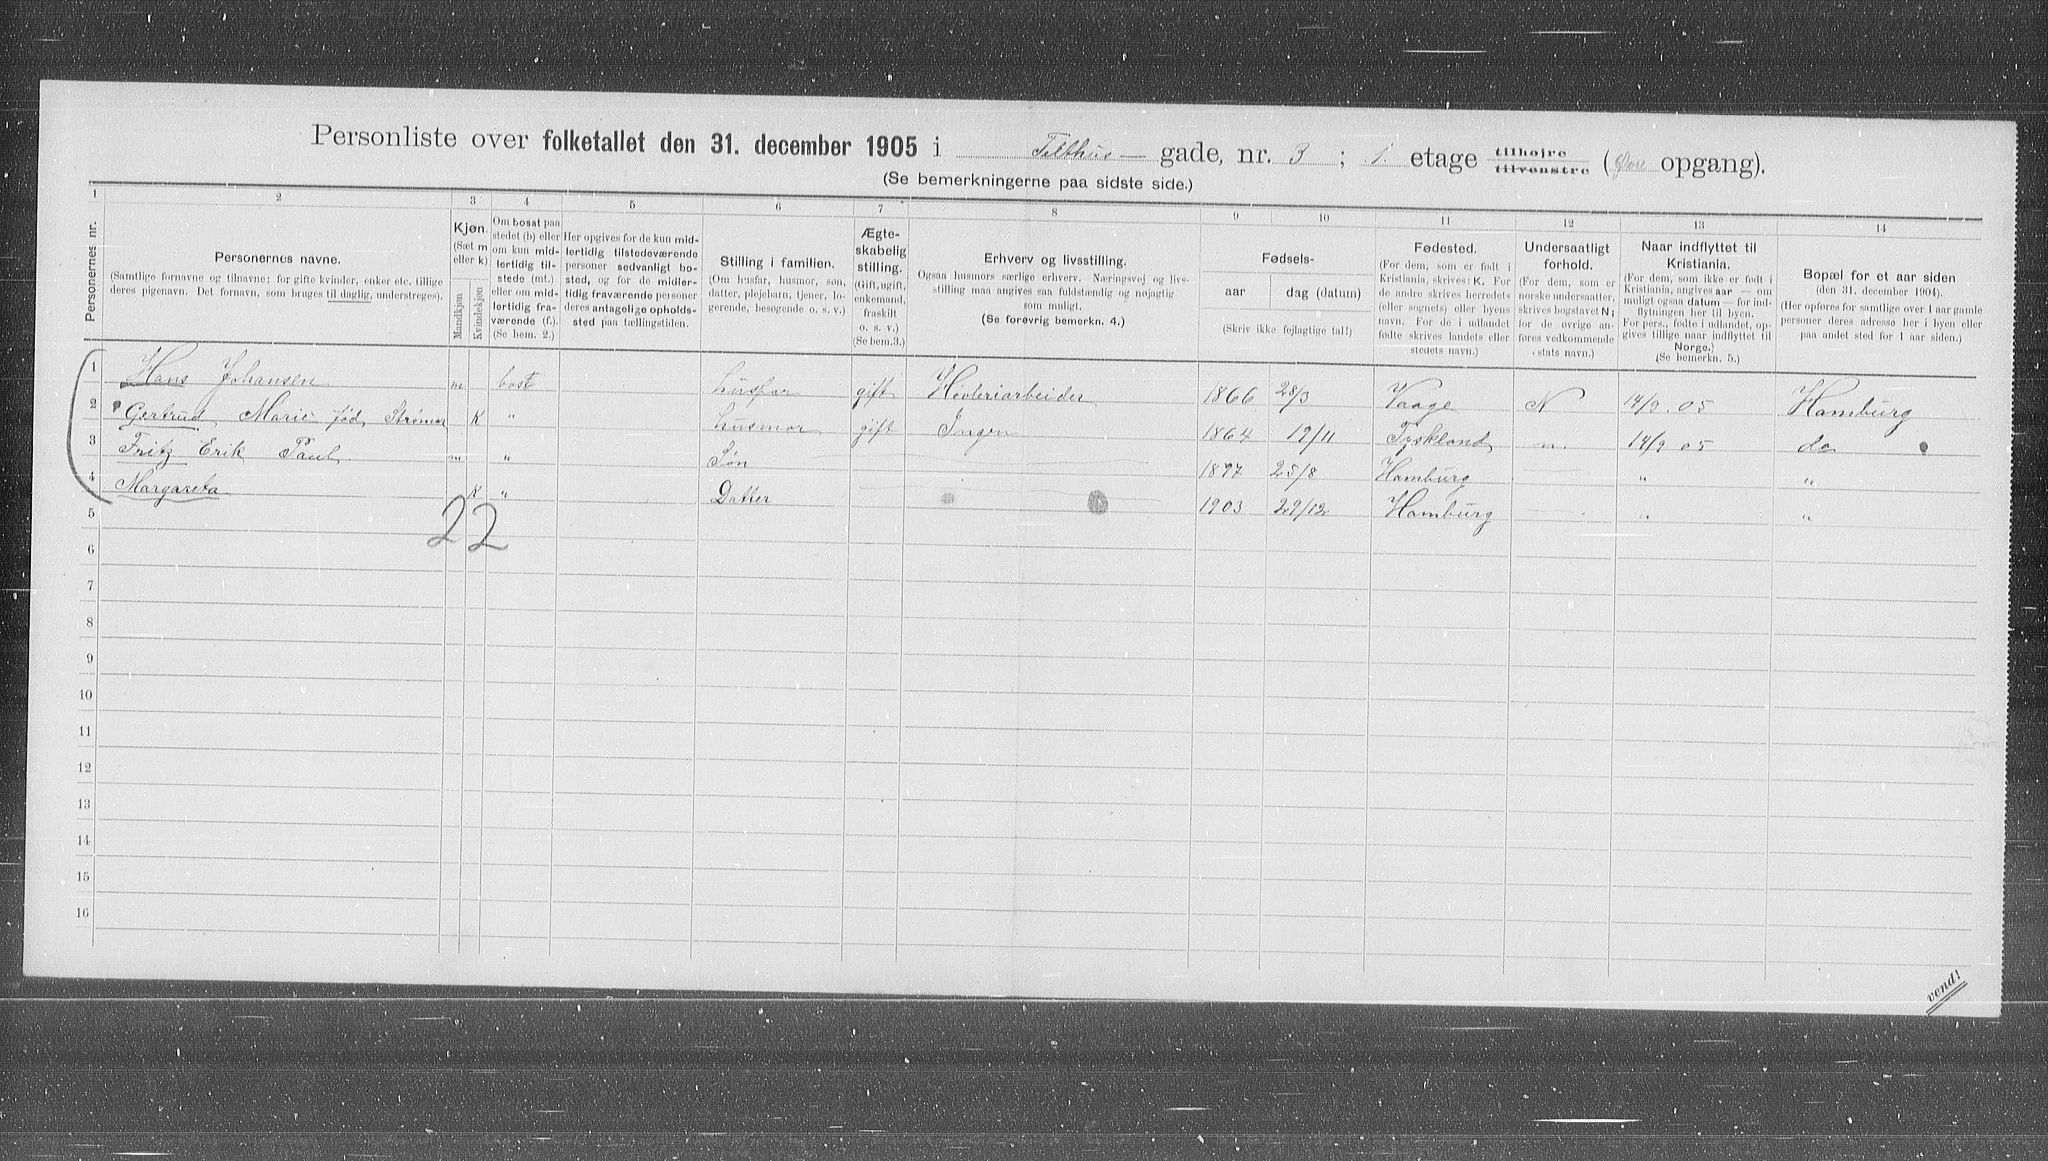 Personliste over folketallet den 31. december 1905 i Telthus- gade, nr. 3; 1. etage tilhøjre tilvenstre (Øvre opgang).
(Se bemerkningerne paa sidste side.)
1 2 3 4 5 6 7 8 9 10 11 12 13 14
Personernes nr.
Personernes navne.
(Samtlige fornavne og tilnavne; for gifte kvinder, enker etc. tillige
deres pigenavn. Det fornavn, som bruges til daglig, understreges).
Kjøn.
(Sæt m
eller k)
Mandkjøn
Kvindekjøn
Om bosat paa
stedet (b) eller
om kun mid-
lertidig til-
stede (mt.)
eller om mid-
lertidig fra-
værende (f.).
(Se bem. 2.)
Her opgives for de kun mid-
lertidig tilstedeværende
personer sedvanligt bo-
sted, og for de midler-
tidig fraværende personer
deres antagelige opholds-
sted paa tællingstiden.
Stilling i familien.
(Om husfar, husmor, søn,
datter, plejebarn, tjener, lo-
gerende, besøgende o. s. v.)
Ægte-
skabelig
stilling.
(Gift, ugift,
enkemand,
fraskilt
o. s. v.)
(Se bem.3.)
Erhverv og livsstilling.
Ogsaa husmors særlige erhverv. Næringsvej og livs-
stilling maa angives saa fuldstændig og nøjagtig
som muligt.
(Se forøvrig bemerkn. 4.)
Fødsels-
aar
dag (datum)
(Skriv ikke fejlagtige tal!)
Fødested.
(For dem, som er født i
Kristiania, skrives: K. For
de andre skrives herredets
(eller sognets) eller byens
navn. For de i udlandet
fødte skrives landets eller
stedets navn.)
Undersaatligt
forhold.
(For dem, som er
norske undersaatter,
skrives bogstavet N;
for de øvrige an-
føres vedkommende
stats navn.)
Naar indflyttet til
Kristiania.
(For dem, som ikke er født i
Kristiania, angives aar — om
muligt ogsaa datum — for ind-
flytningen her til byen.
For pers., fødte i udlandet, op-
gives tillige naar indflyttet til
Norge.)
(Se bemerkn. 5.)
Bopæl for et aar siden
(den 31. december 1904).
(Her opføres for samtlige over 1 aar gamle
personer deres adresse her i byen eller
paa andet sted for 1 aar siden.)
1 Hans Johansen m bost husfar gift Høvleriarbeider 1866 28/3 Vaage N 14/9 05 Hamburg
2 Gertrud Marie fød Strømer K " husmor gift Ingen 1864 19/11 Tyskland n. 14/9 05 do
3 Fritz Erik Paul m " Søn 1897 25/8 Hamburg " "
4 Margareta K " Datter 1903 29/12 Hamburg " "
5
2 2
6
7
8
9
10
11
12
13
14
15
16
vend!